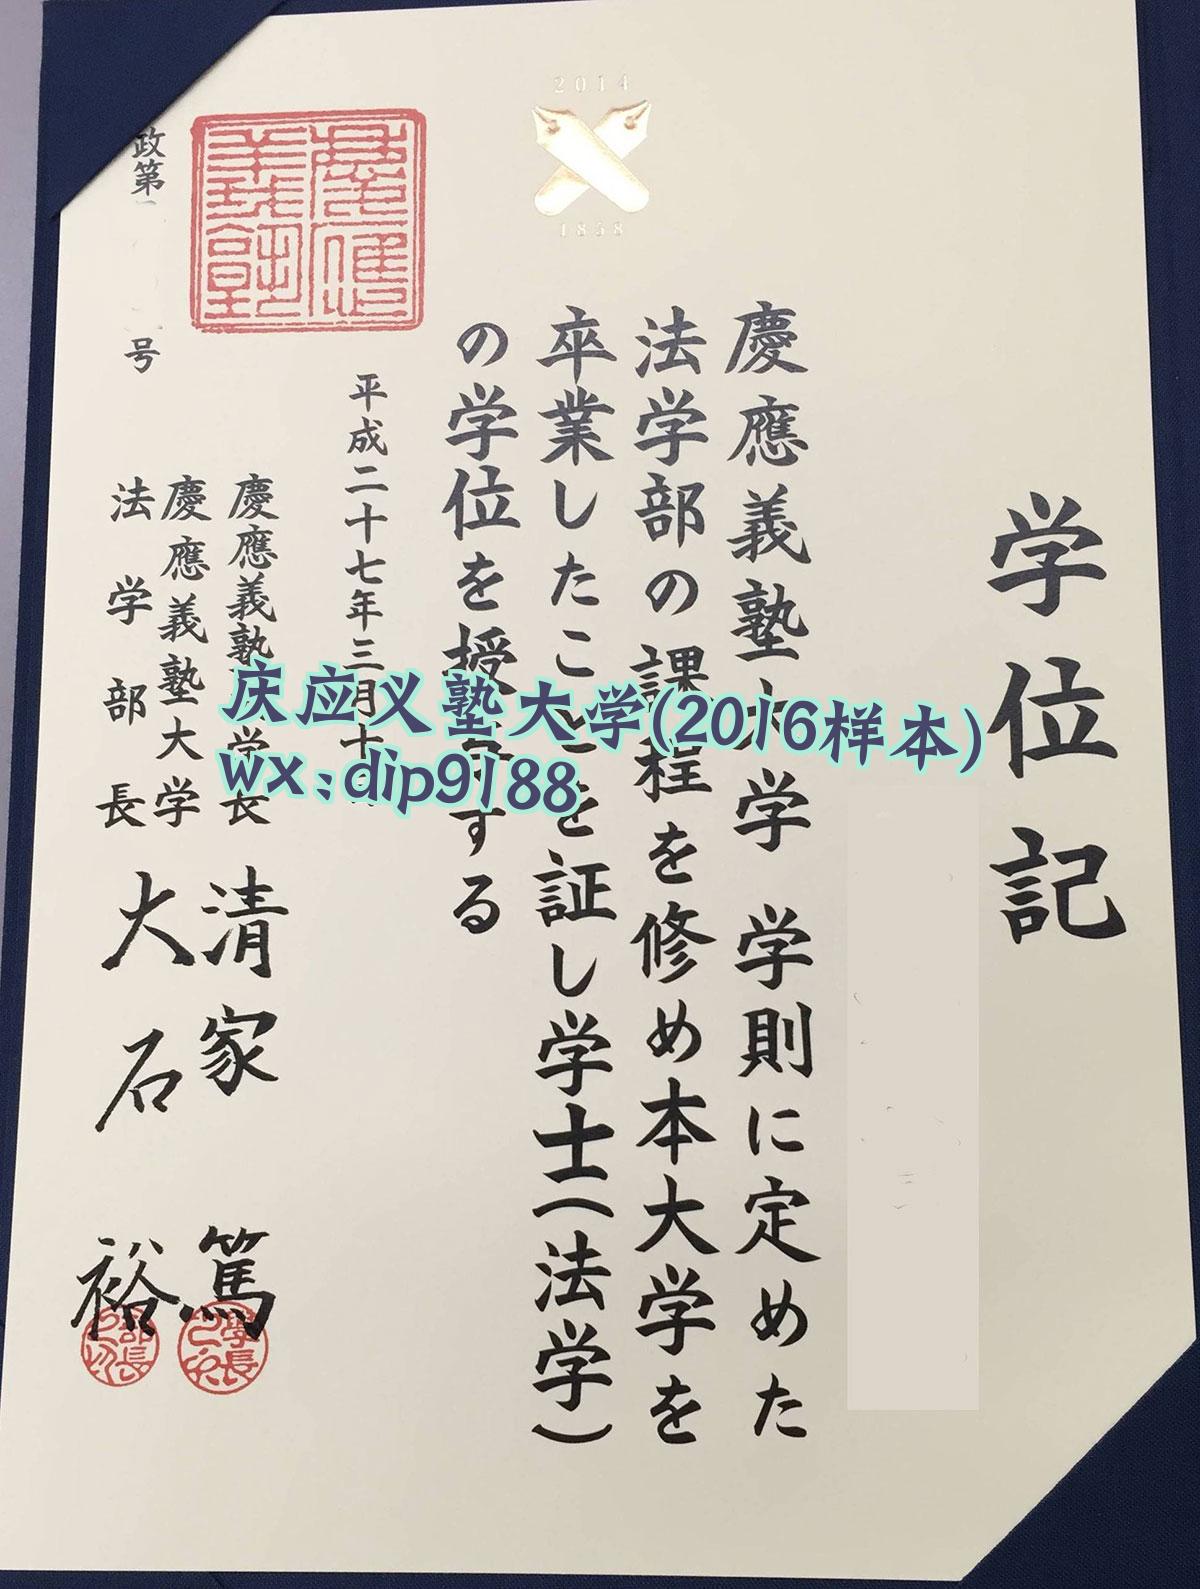 学位記
慶應義塾大学学則に定めた
法学部の課程を修め本大学を
卒業したことを証し学士(法学)
の学位を授与する
平成二十七年三月十
慶應義塾大学長 清家 篤
慶應義塾大学
法学部長 大石 裕
政第
号
慶應義塾
2014
1858
学長
部長
庆应义塾大学(2016样本)
wx:dip9188